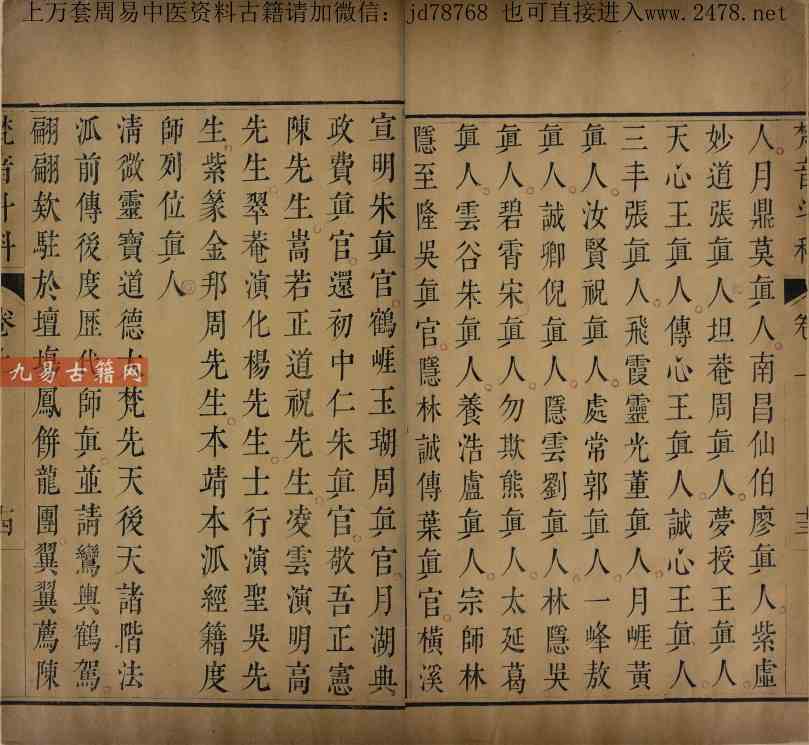 上万套周易中医资料古籍请加微信：jd78768 也可直接进入www.2478.net
人月鼎莫眞人南昌仙伯廖眞人紫虛
妙道張眞人坦菴周眞人夢授王眞人
天心王眞人傳心王眞人誠心王眞人
三丰張眞人飛霞靈光董眞人月崕黃
眞人汝賢祝眞人處常郭眞人一峰敖
眞人誠卿倪眞人隱雲劉眞人林隱吳
眞人碧霄宋眞人勿欺熊眞人太延葛
眞人雲谷朱眞人養浩盧眞人宗師林
隱至隆吳眞官隱林誠傳葉眞官橫溪
宣明朱眞官鶴崕玉瑚周眞官月湖典
政費眞官還初中仁朱眞官敬吾正憲
陳先生嵩若正道祝先生凌雲演明高
先生翠菴演化楊先生士行演聖吳先
生紫篆金邦周先生本靖本派經籍度
師列位眞人
清微靈寶道德梵先天後天諸階法
派前傳後度歷代師眞並請鸞輿鶴駕
翩翩欸駐於壇鳳餅龍團翼翼薦陳
九易古籍网